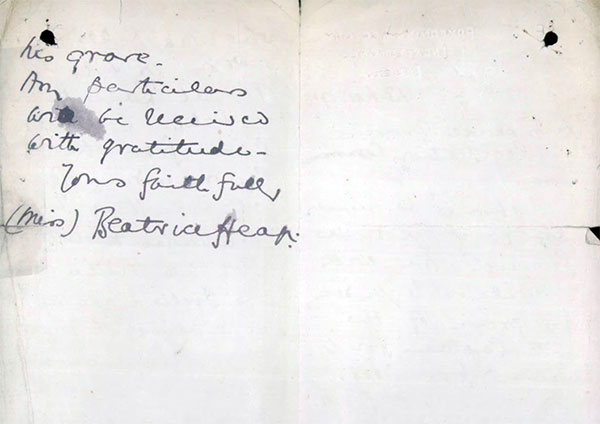 his grave.
Any particulars
will be received
with gratitude.
Yours faithfully
(Miss) Beatrice Heap.